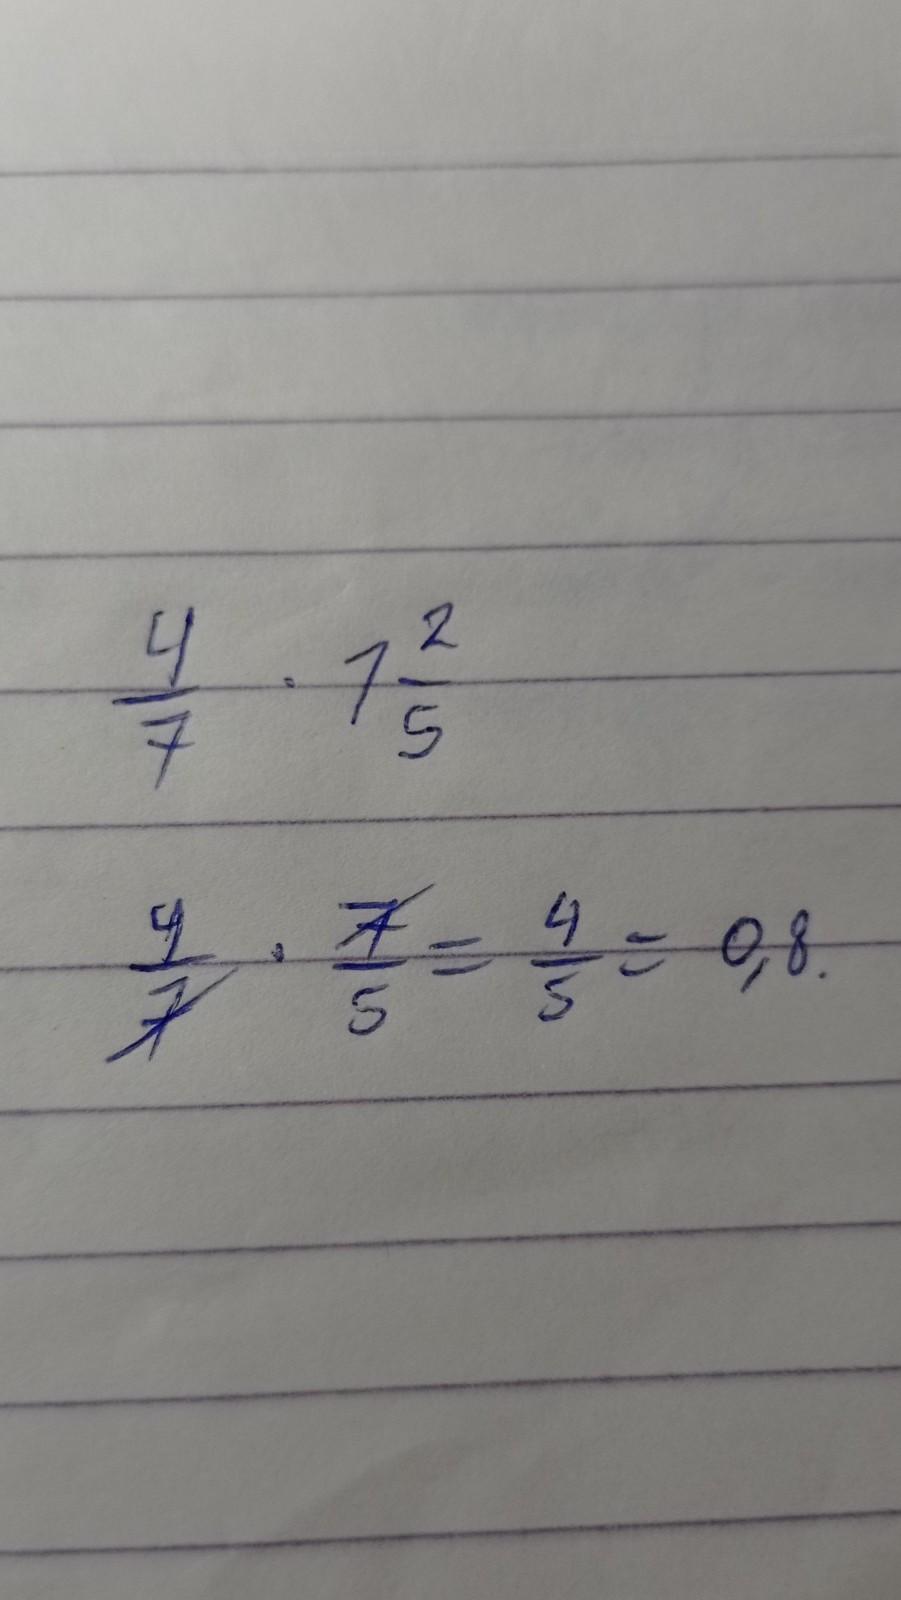 4/7 · 1 2/5
4/7 · 7/5 = 4/5 = 0,8.